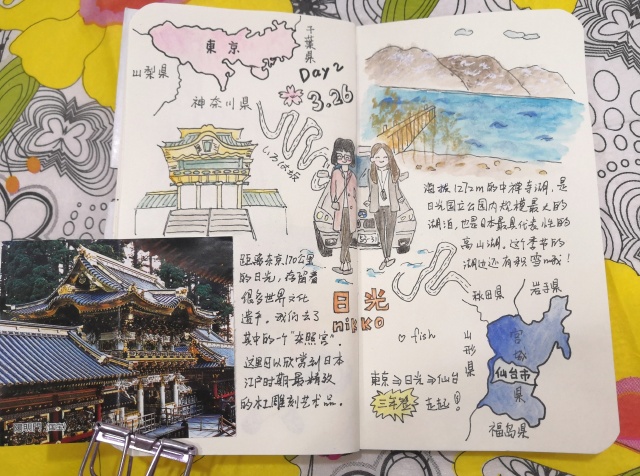 東京
千葉県
山梨県
神奈川県
Day 2
3.26
いろは坂
距离东京170公里
的日光，存留着
很多世界文化
遗产。我们去了
其中的一个"东照宫"。
这里可以欣赏到日本
江户时期最精致
的木工雕刻艺术品。
日光
nikko
海拔1272m的中禅寺湖，是
日光国立公园内规模最大的
湖泊，也是日本最具代表性的
高山湖。这个季节的
湖边还有积雪哦！
秋田県
岩手県
山形県
宮城県
仙台市
福島県
♡ fish
東京⇒日光⇒仙台
走起！
陽明門